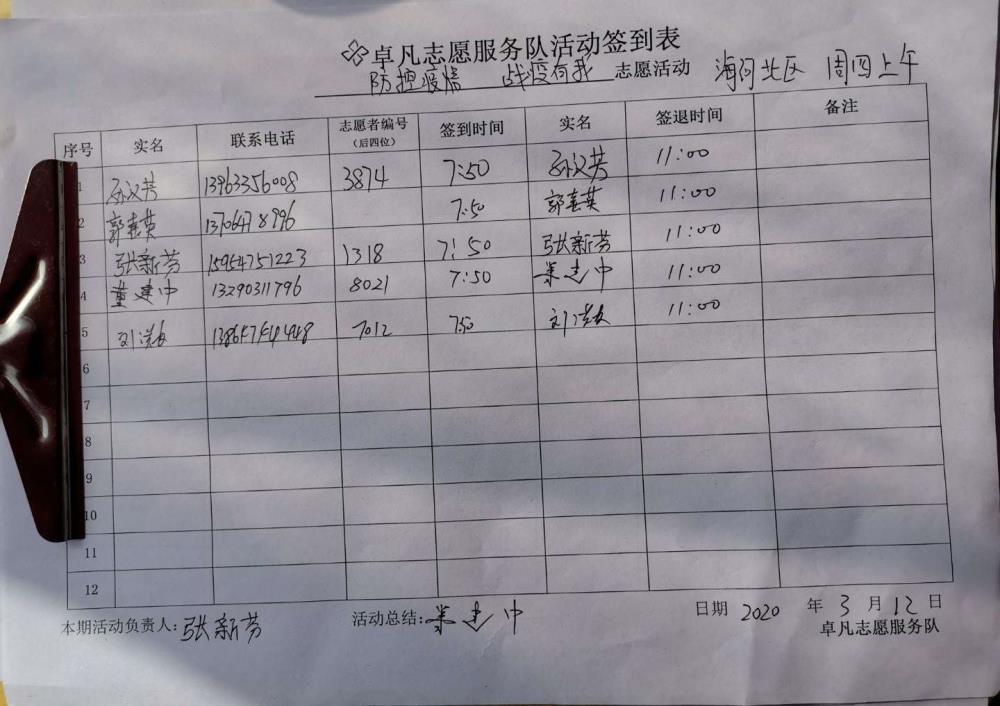 卓凡志愿服务队活动签到表
防控疫情 战疫有我 志愿活动 海河北区 周四上午
序号 实名 联系电话 志愿者编号（后四位） 签到时间 实名 签退时间 备注
1 孙义芳 13963356008 3874 7:50 孙义芳 11:00
2 郭英 13706478996 7:50 郭英 11:00
3 张新芳 15954751223 1318 7:50 张新芳 11:00
4 董建中 13290311796 8021 7:50 董建中 11:00
5 刘 7012 750 刘 11:00
6
7
8
9
10
11
12
本期活动负责人:张新芳 活动总结:董建中 日期 2020 年 3 月 12 日
卓凡志愿服务队